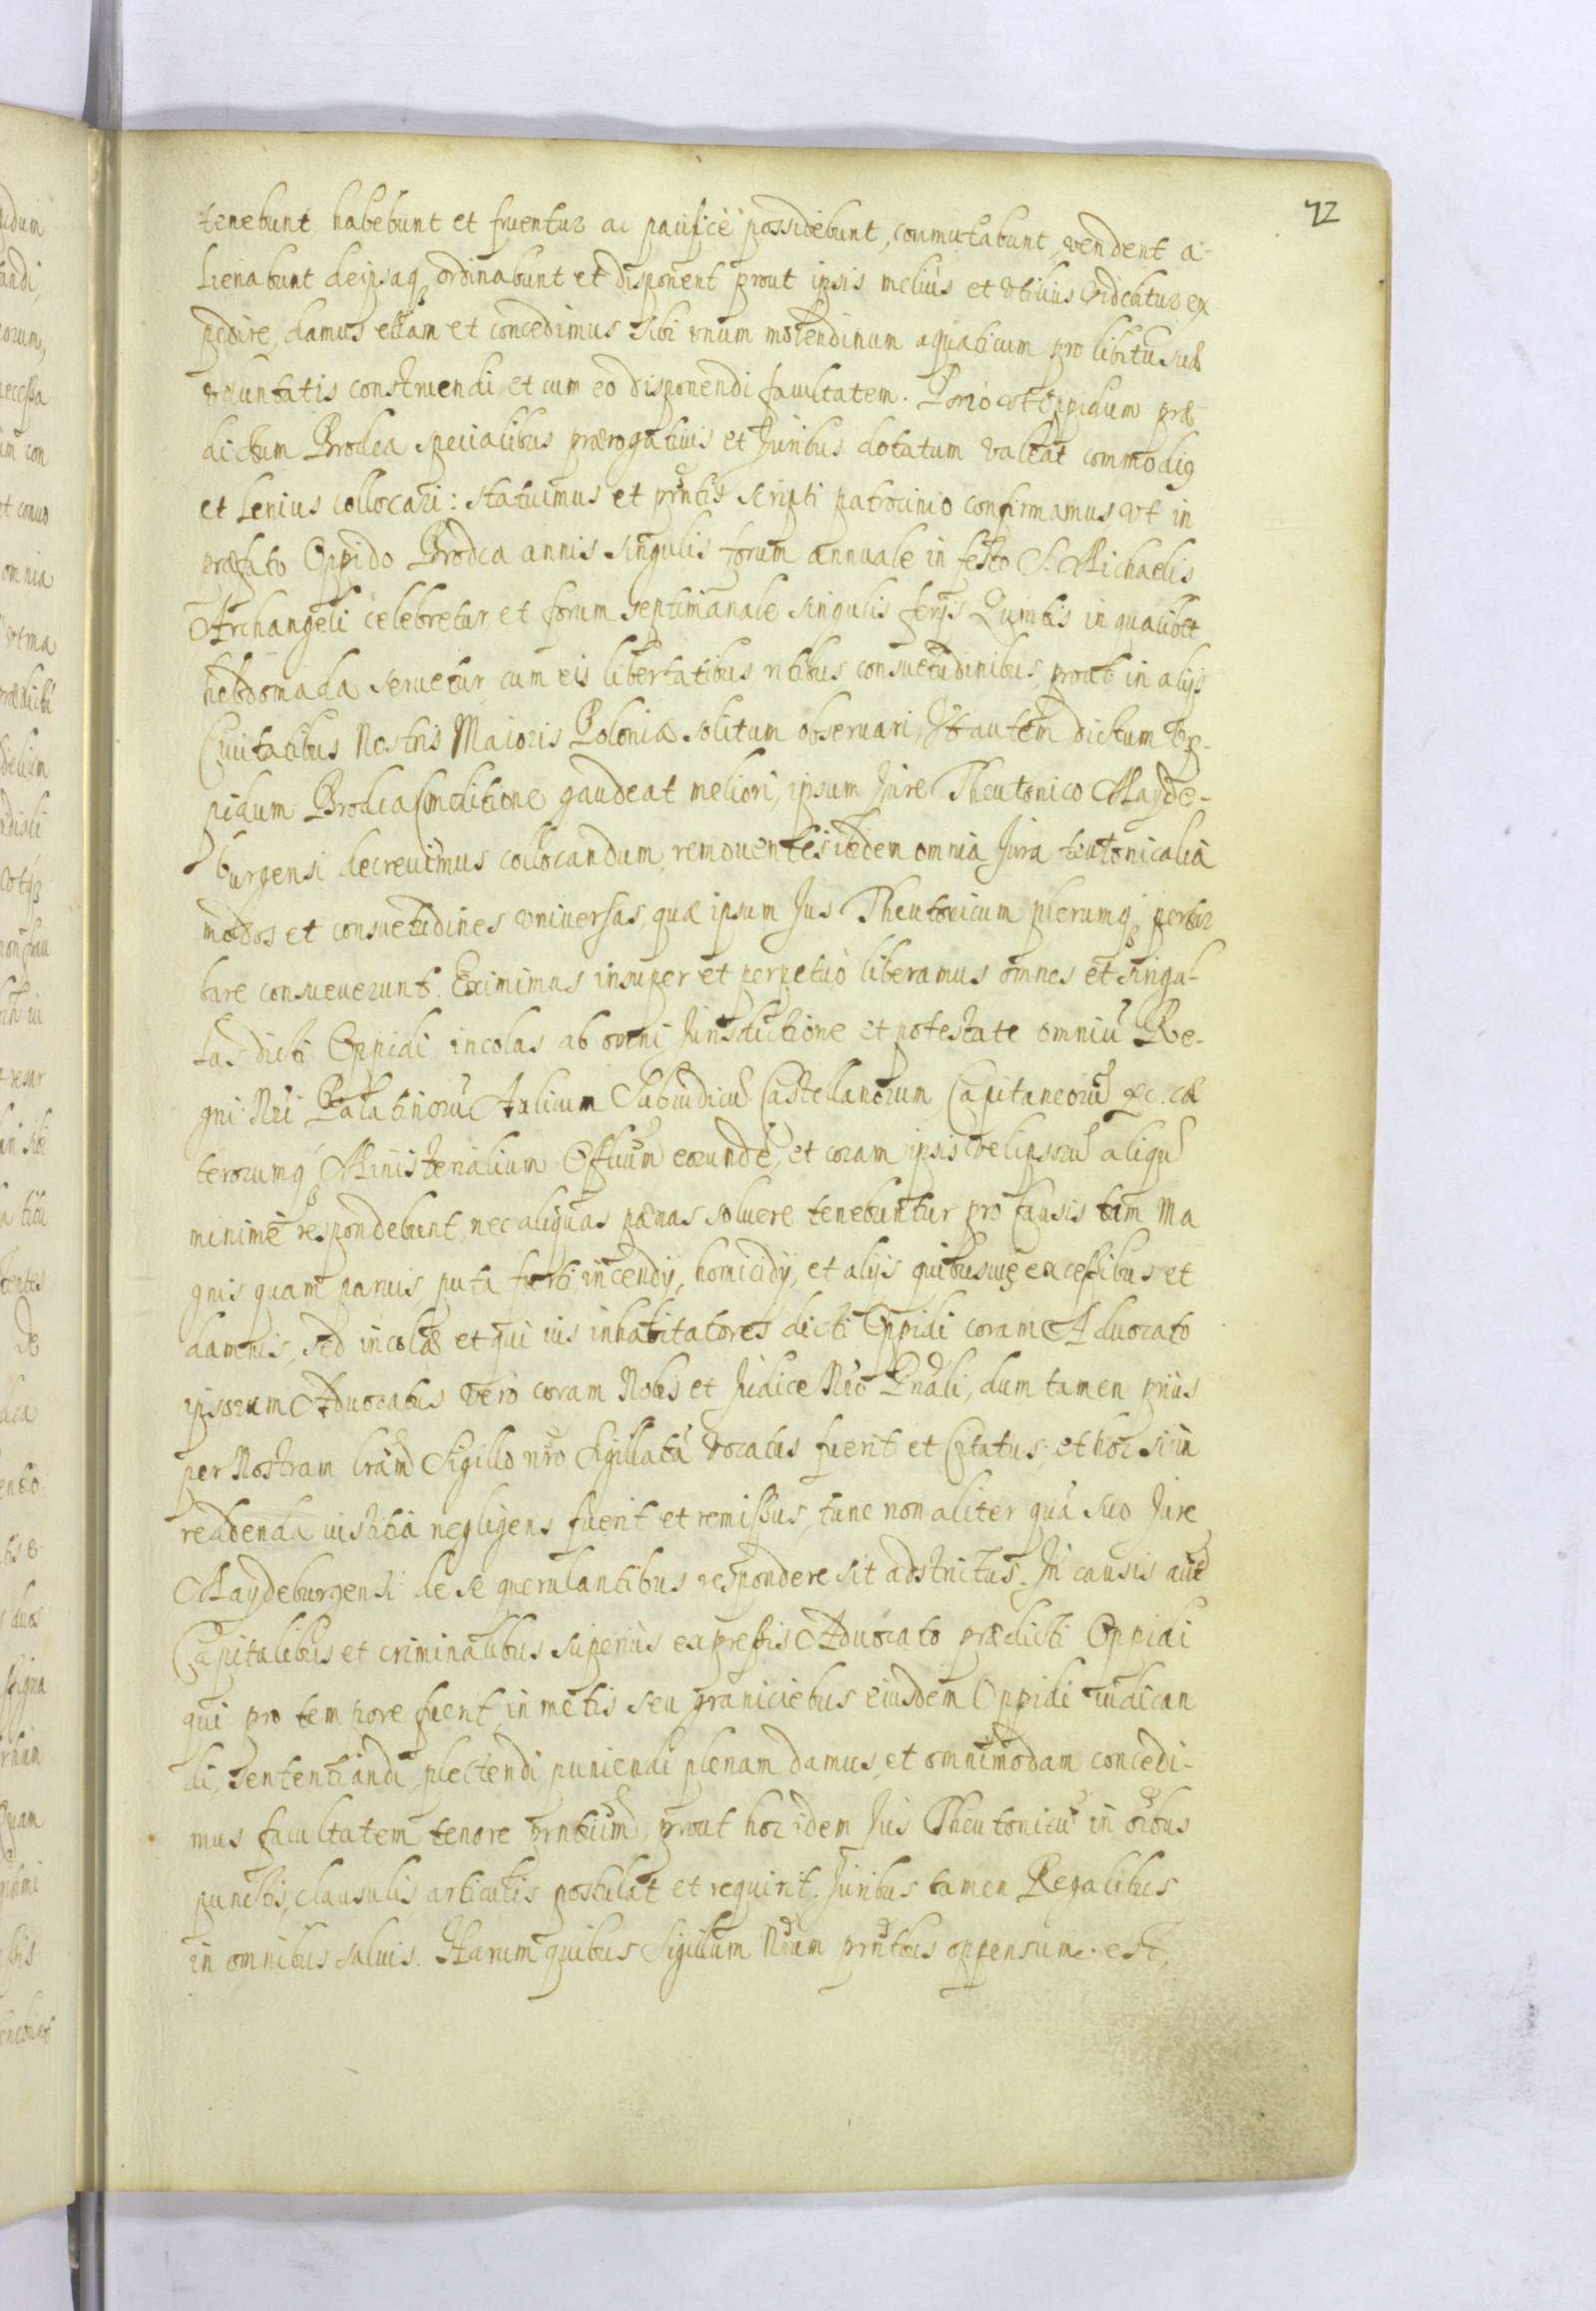 72
tenebunt habebunt et fruentur ac pacificè possidebunt, conmutabunt, vendent a-
lienabunt deipsaq; ordinabunt et disponent prout ipsis melius et vtilius videbitur ex
pedire, damus etiam et concedimus sibi vnum molendinum aquaticum pro libitu suæ
voluntatis construendi, et cum eo disponendi facultatem. Porrò vt Oppidum præ
dictum Brodca specialibus prærogatiuis et Juribus dotatum valeat commodiq
et lenius collocari: statuimus et prntis scripti patrocinio confirmamus, vt in
præfato Oppido Brodca annis singulis forum annuale in festo S. Michaelis
Archangeli celebretur, et forum septimanale singulis ferijs Quintis in qualibet
hebdomada seruetur, cum eis libertatibus ritibus consuetudinibus, prout in alijs
Ciuitatibus Nostris Maioris Poloniæ solitum obseruari, Vt autem dictum Op-
pidum Brodca Conditione gaudeat meliori, ipsum Jure Theutonico Mayde-
burgensi decreuimus collocandum, remouentes ibidem omnia Jura teutonicalia
modos et consuetudines vniuersas, quæ ipsum Jus Theutonicum plerumq; pertur
bare consueuerunt. Eximimus insuper et perpetuò liberamus omnes et singu-
los dicti Oppidi incolas ab omni Jurisdictione et potestate omniū Re-
gni Nri Palatinorū Iudicum Subiudicū Castellanorum Capitaneorū &c. cæ
terorumq; Ministerialium Officium eorundē, et coram ipsis vel ipsorū aliqū
minimè respondebunt, nec aliquas pœnas soluere tenebuntur pro causis tam ma
gnis quam paruis, puta furti, incendij, homicidij, et alijs quibusuis excessibus et
damnis, sed incolæ et qui uis inhabitatores dicti Oppidi coram Aduocato
ipsorum Aduocatus verò coram Nobis et Judice Nrō Gnāli, dum tamen prius
per Nostram lrām Sigillo nrō Sigillatā vocatus fuerit et Citatus, et hoc si in
reddenda iustitia negligens fuerit et remissus, tunc non aliter quā suo Jure
Maydeburgensi de se querulantibus respondere sit adstrictus. In causis autē
Capitalibus et criminalibus superius expressis Aduocato prædicti Oppidi
qui pro tempore fuerit, in metis seu graniciebus eiusdem Oppidi iudican
di, sententiandi, plectendi, puniendi plenam damus, et omnimodam concedi-
mus facultatem tenore prntium, prout hoc idem Jus Theutonicū in oībus
punctis, clausulis, articulis postulat et requirit. Juribus tamen Regalibus
in omnibus saluis. Harum quibus Sigillum Nrūm prntbus appensum. est,